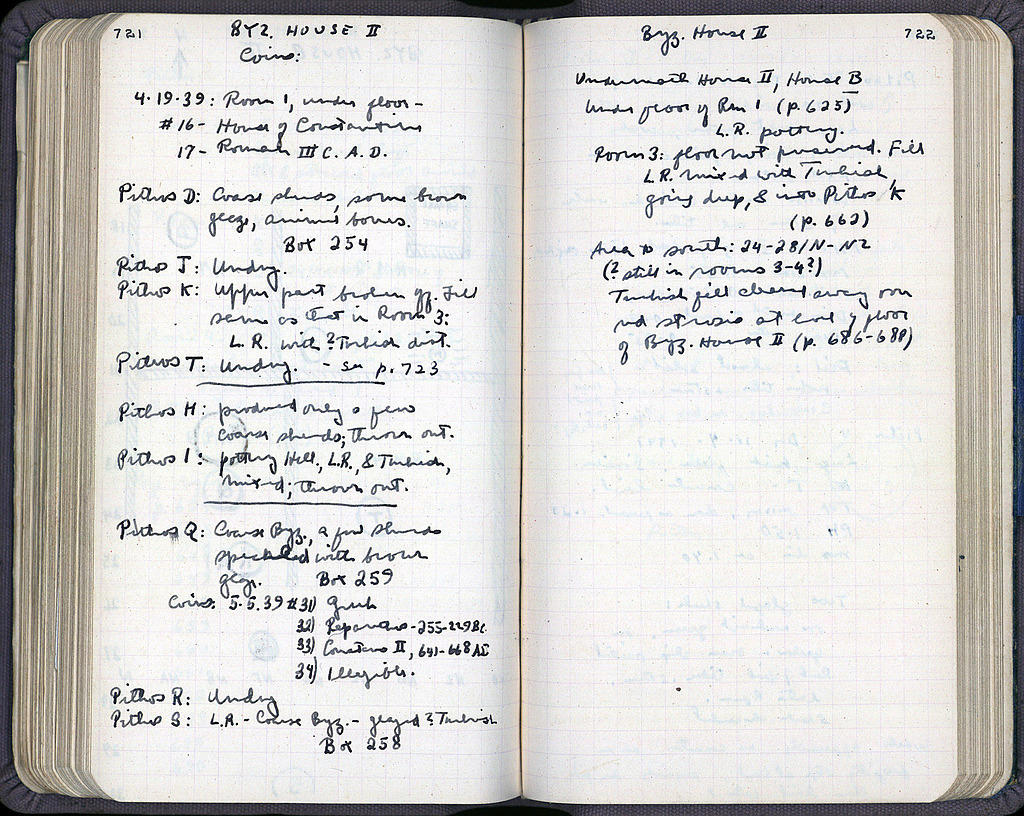 721
BYZ. HOUSE II
Coins:
4.19.39: Room 1, under floor -
#16 - House of Constantine
17 - Roman III C. A.D.
Pithos D: Coarse sherds, some brown
glaze, animal bones.
Box 254
Pithos J: Undug.
Pithos K: Upper part broken off. Fill
same as that in Room 3:
L.R. with ? Turkish dist.
Pithos T: Undug. - see p. 723
Pithos H: produced only a few
coarse sherds; thrown out.
Pithos I: pottery Hell., L.R., & Turkish,
mixed; thrown out.
Pithos Q: Coarse Byz., a few sherds
speckled with brown
glaze. Box 259
Coins: 5.5.39 #31) Greek
32) - 255-229 BC.
33) Constans II, 641-668 AD
34) Illegible.
Pithos R: Undug
Pithos S: L.R. - Coarse Byz. - glazed ? Turkish
Box 258
Byz. House II
722
Underneath House II, House B
Under floor of Rm 1 (p. 625)
L.R. pottery.
Room 3: floor not preserved. Fill
L.R. mixed with Turkish,
going deep, & into Pithos K
(p. 662)
Area to south: 24-28/N-NZ
(? still in rooms 3-4?)
Turkish fill cleared away over
at level of floor
of Byz. House II (p. 686-688)